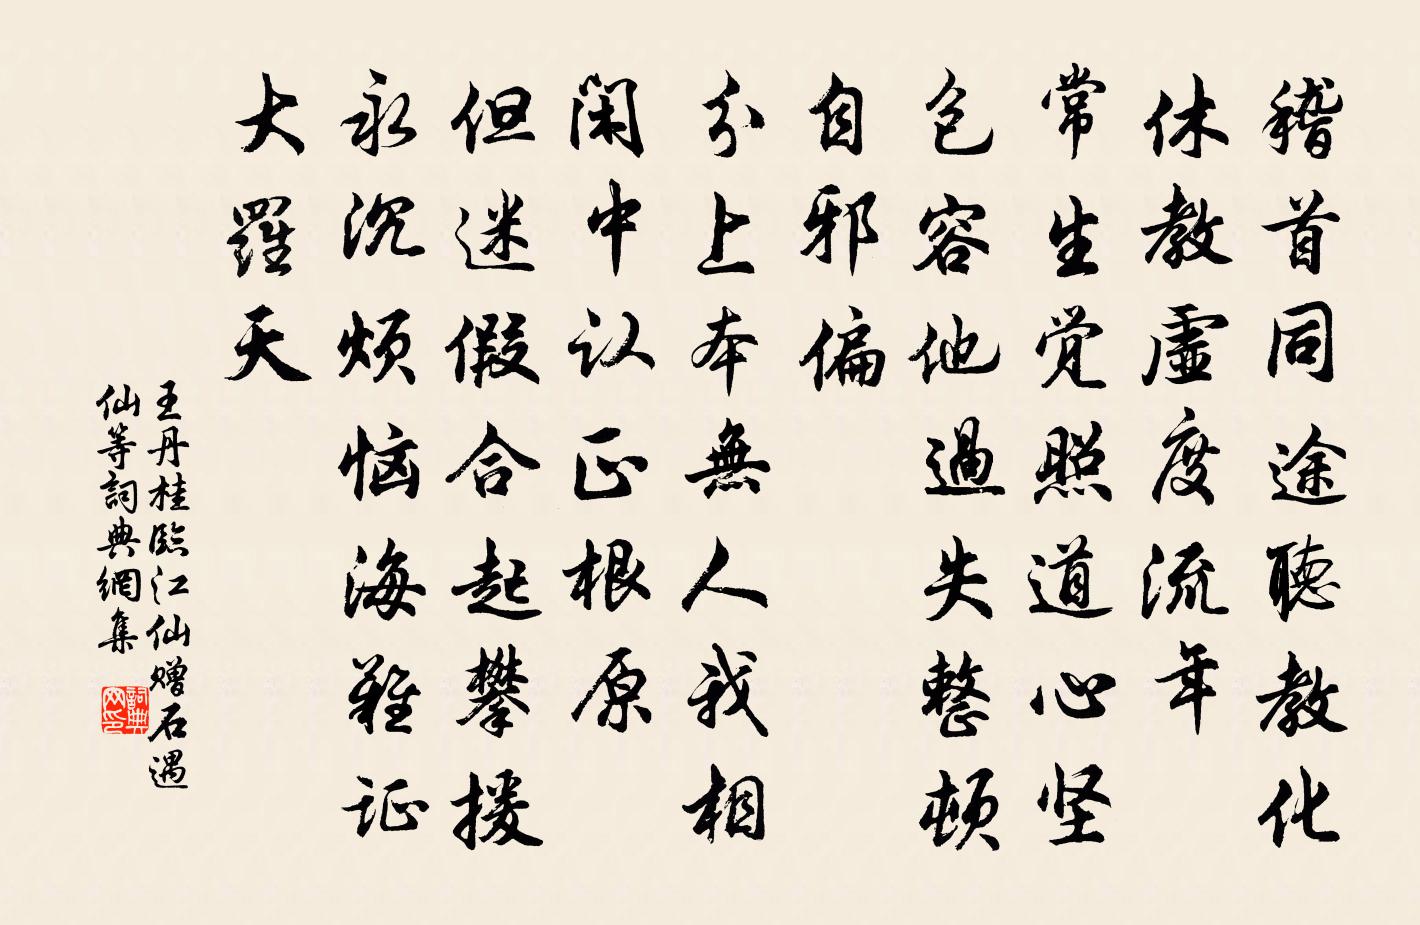 稽首同途聽教化
休教虛度流年
常生觉照道心坚
包容他過失整頓
自邪偏
分上本無人我相
閑中认正根原
但迷假合起攀援
永沉烦恼海難证
大羅天
王丹桂臨江仙赠石遇
仙等詞典網集
詞典网印